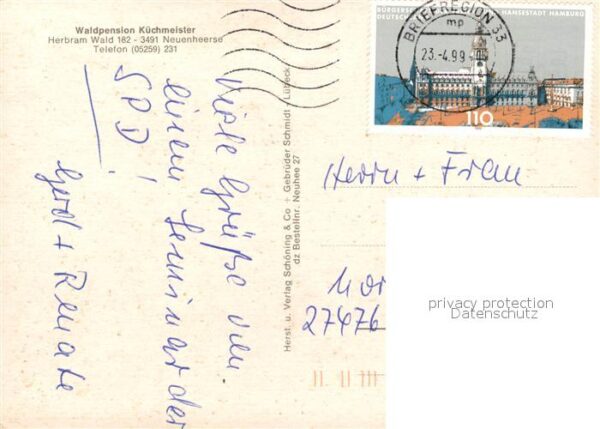 Waldpension Küchmeister
Herbram Wald 182 - 3491 Neuenheerse
Telefon (05259) 231
Viele Grüße von
einem Seminar der
SPD!
Gerd + Renate
Herst. u. Verlag Schöning & Co + Gebrüder Schmidt - Lübeck
dz Bestellnr. Neuhee 27
BRIEFREGION 33
mp
23.-4.99
BÜRGERS
HANSESTADT HAMBURG
DEUTSC
110
Herrn + Frau
27476
privacy protection
Datenschutz